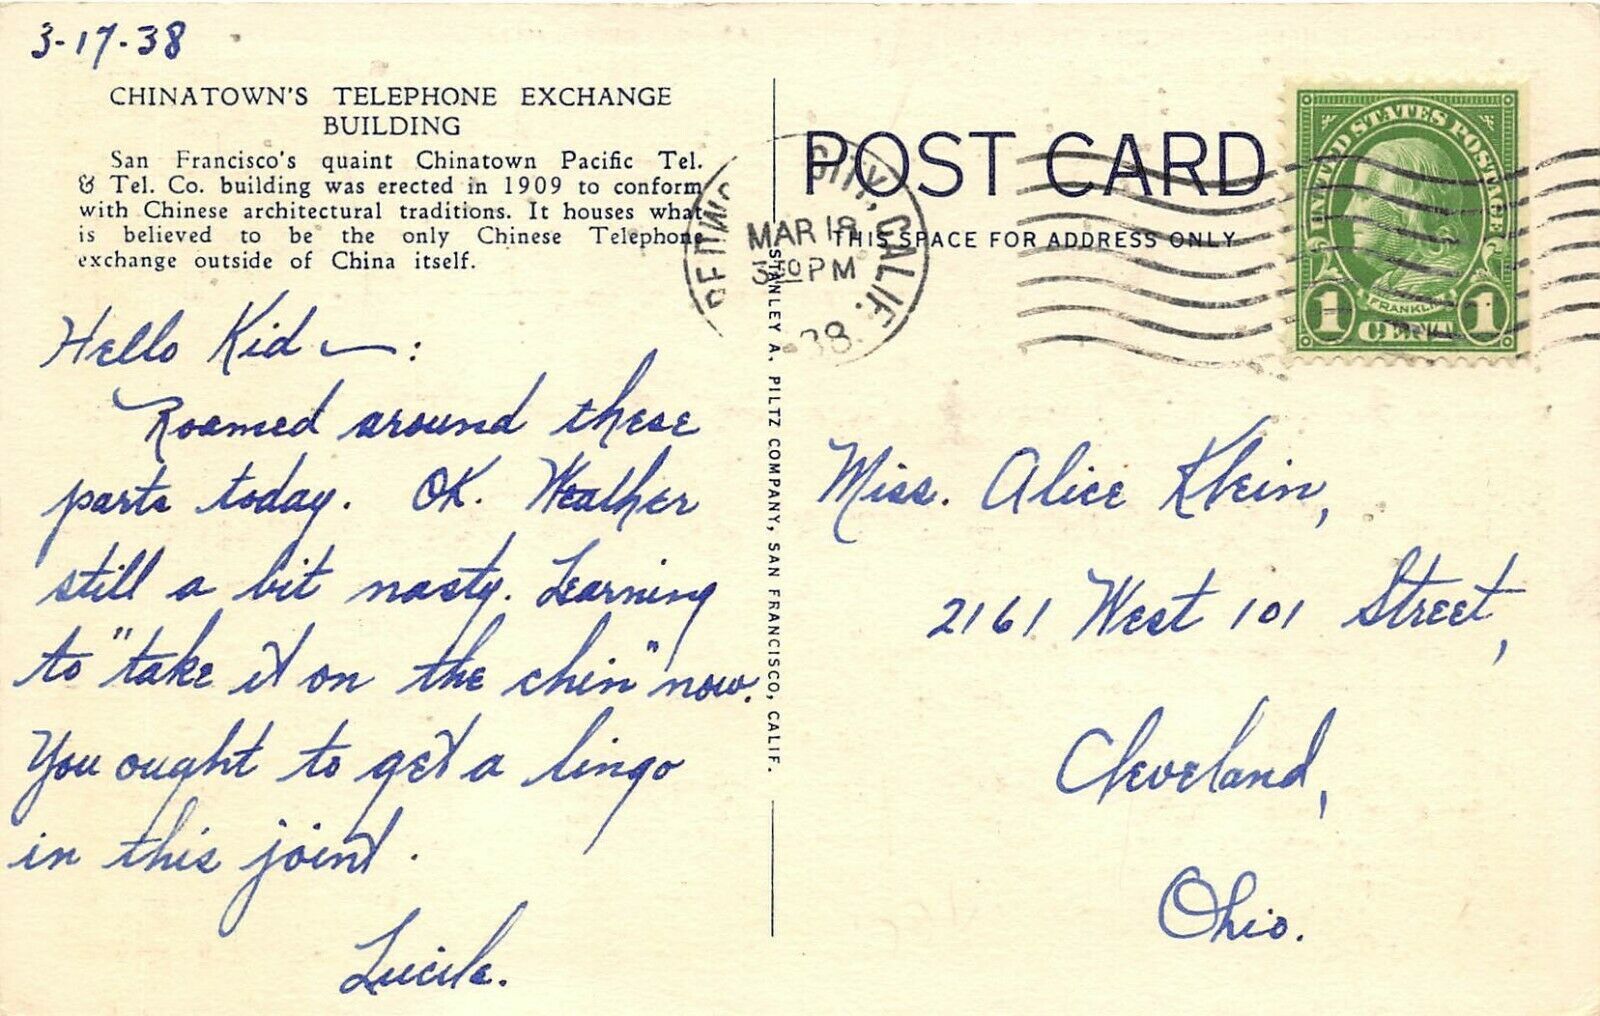 3-17-38
CHINATOWN'S TELEPHONE EXCHANGE
BUILDING
San Francisco's quaint Chinatown Pacific Tel.
& Tel. Co. building was erected in 1909 to conform
with Chinese architectural traditions. It houses what
is believed to be the only Chinese Telephone
exchange outside of China itself.
Hello Kid —:
Roamed around these
parts today. OK. Weather
still a bit nasty. Learning
to "take it on the chin" now.
You ought to get a lingo
in this joint.
Lucile.
STANLEY A. PILTZ COMPANY, SAN FRANCISCO, CALIF.
POST CARD
THIS SPACE FOR ADDRESS ONLY
CITY, CALIF.
MAR 18
3 30 PM
38.
UNITED STATES POSTAGE
FRANKLIN
1 CENT 1
Miss. Alice Klein,
2161 West 101 Street,
Cleveland,
Ohio.